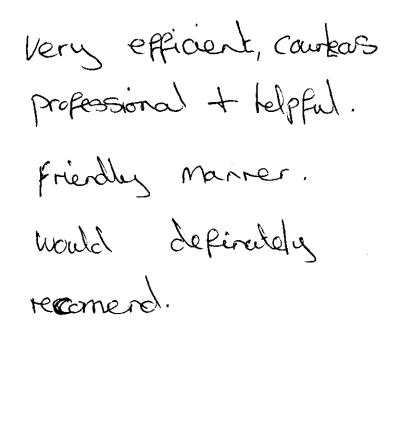 very efficient, courteas
professional + helpful.
friendly manner.
would definately
recomend.